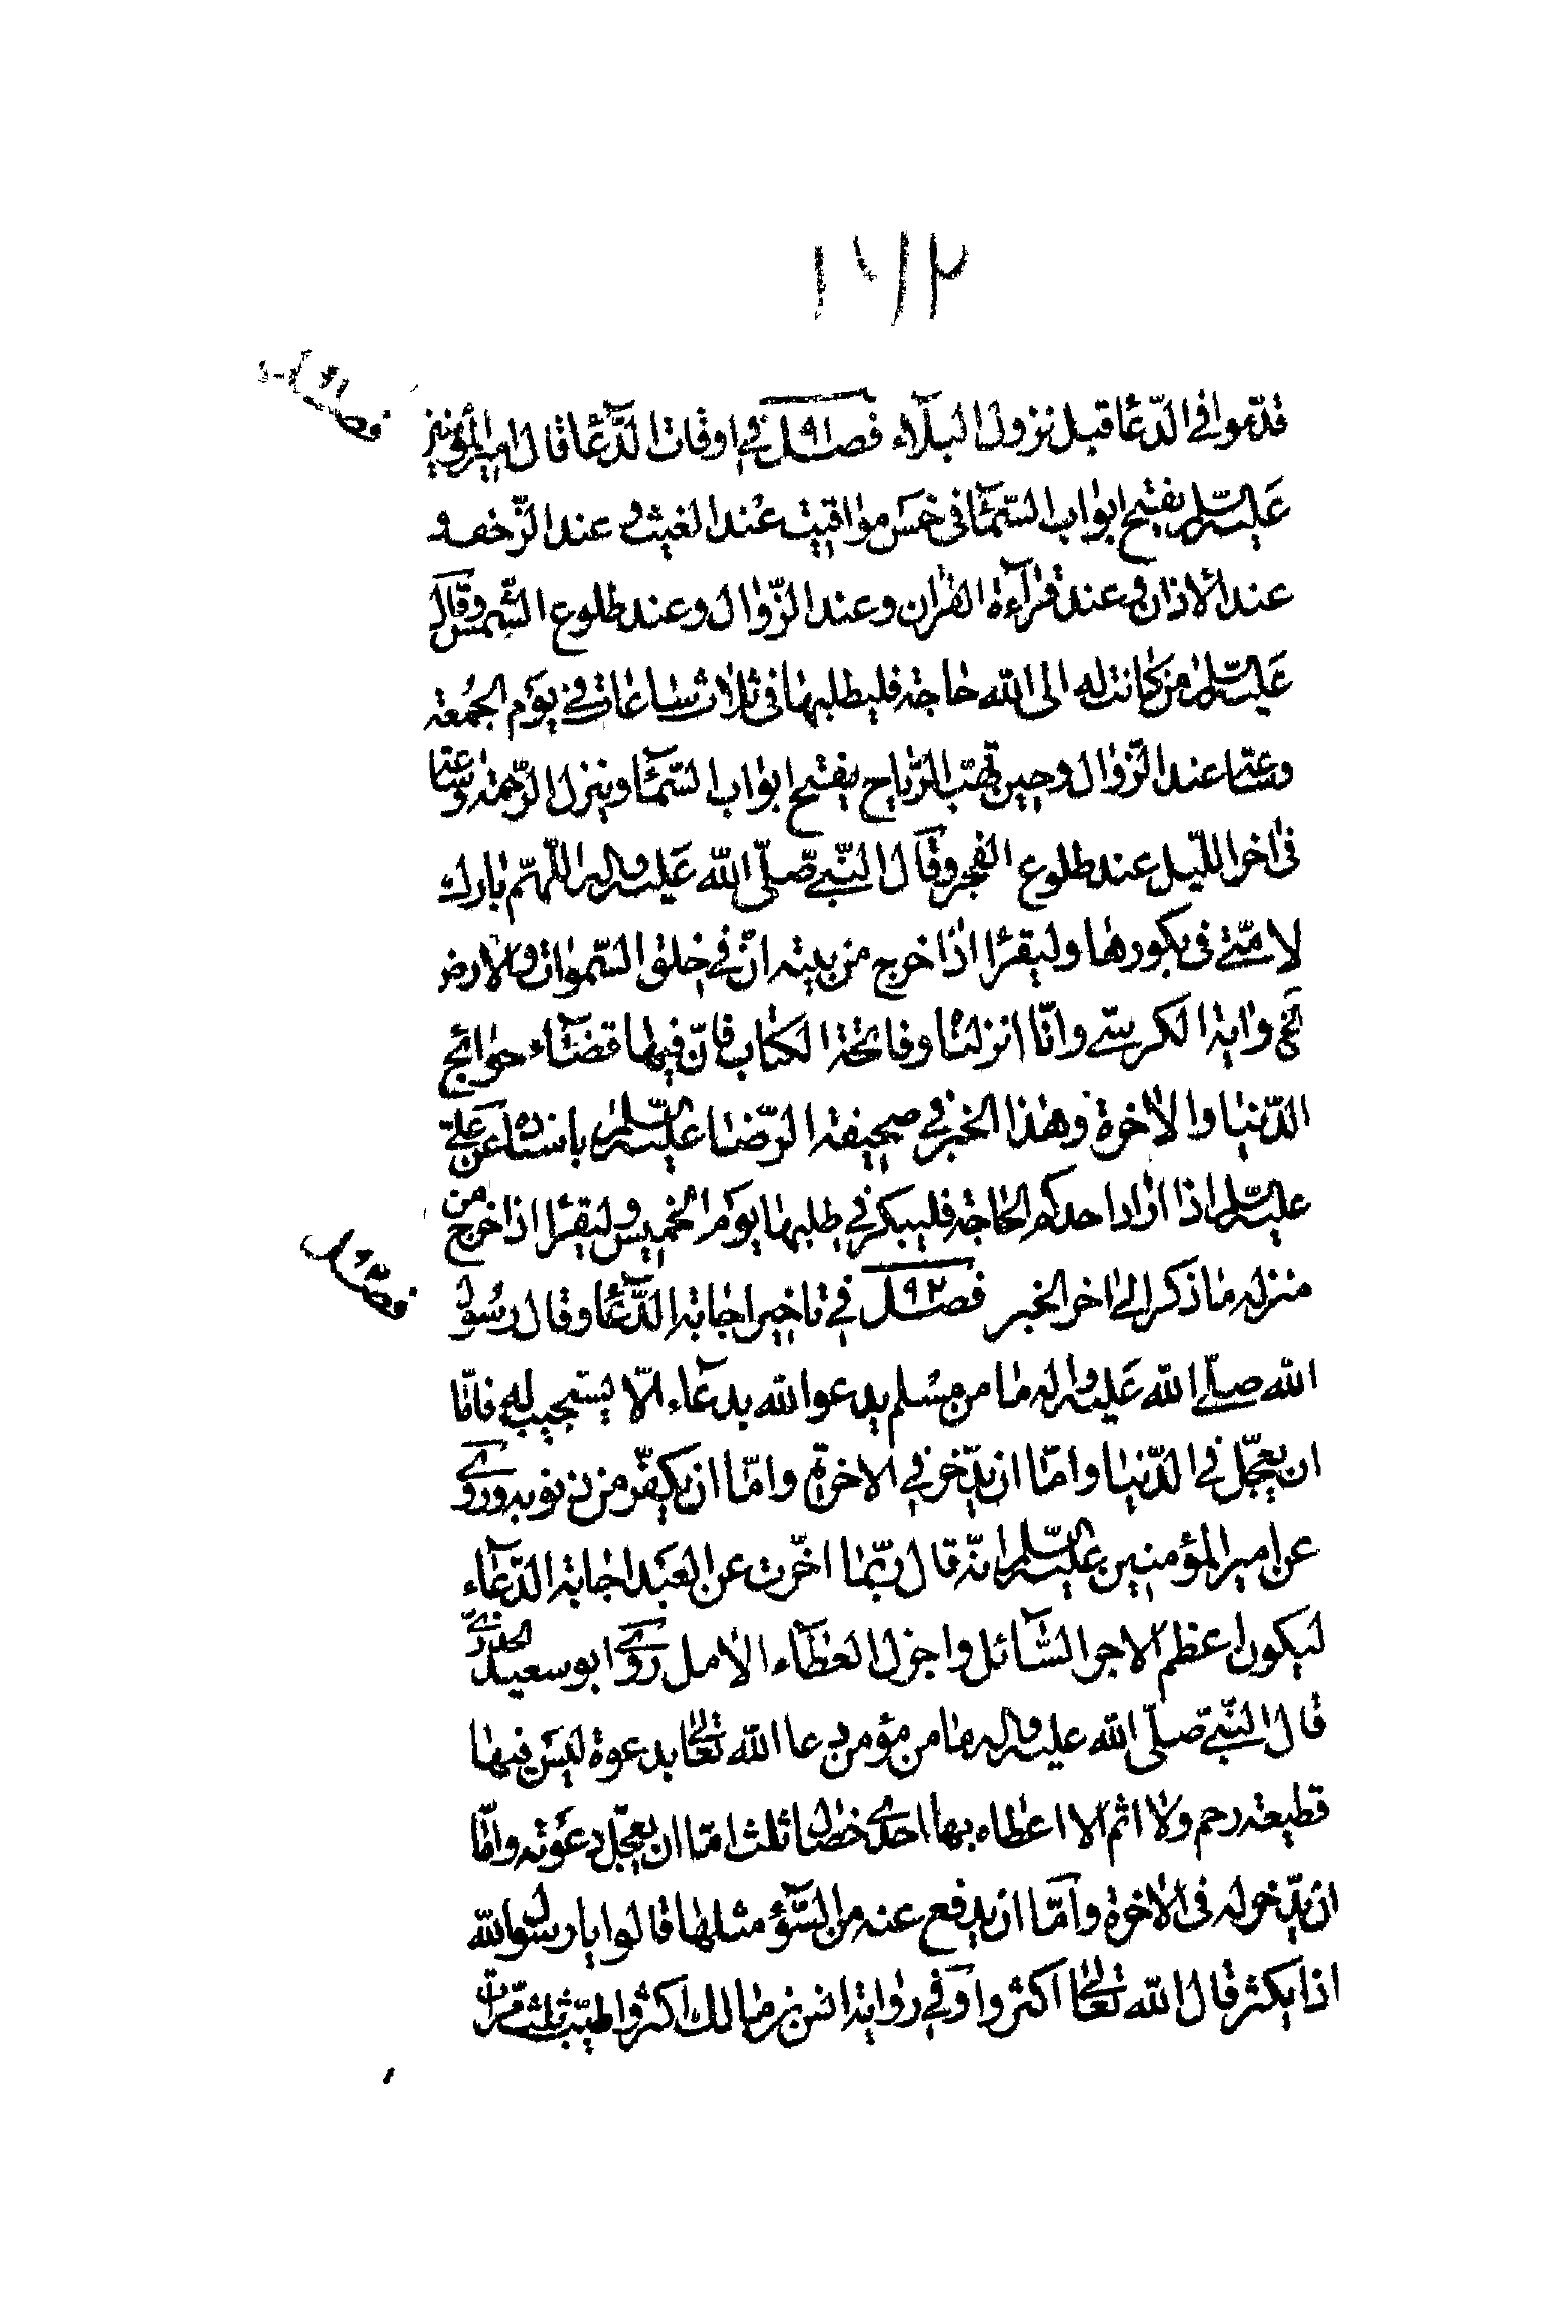 قدّموا فى الدّعا قبل نزول البلآء فصل ٩١ فى اوقات الدّعآ قال امير المؤمنين
عليه السّلم يفتح ابواب السّمآء فى خمس مواقيت عند الغيث و عند الزّحف و
عند الاذان و عند قرآءة القران و عند الزّوال و عند طلوع الشّمس وقال
عليه السّلم من كانت له الى الله حاجة فليطلبها فى ثلاث ساعات فى يوم الجمعة
وساعة عند الزّوال و حين تهبّ الرّياح يفتح ابواب السّمآء و ينزل الرّحمة وساعة
فى اخر اللّيل عند طلوع الفجر وقال النّبى صلّى الله عليه واله اللّهمّ بارك
لامّتى فى بكورها وليقرا اذا خرج من بيته انّ فى خلق السّموات والارض
الخ واية الكرسىّ وانّا انزلناه وفاتحة الكتاب فانّ فيها قضآء حوائج
الدّنيا والاخرة وهذا الخبر فى صحيفة الرّضا عليه السّلم باسناده عن علىّ
عليه السّلم اذا اراد احدكم الحاجة فليبكر فى طلبها يوم الخميس وليقرا اذا خرج من
منزله ما ذكر الى اخر الخبر فصل ٩٢ فى تاخير اجابة الدّعآ وقال رسول
الله صلّى الله عليه واله ما من مسلم يدعوا الله بدعآء الّا يستجيب له فامّا
ان يعجّل فى الدّنيا وامّا ان يدّخر فى الاخرة وامّا ان يكفّر من ذنوبه وروى
عن امير المؤمنين عليه السّلم انّه قال ربّما اخّرت عن العبد اجابة الدّعآء
ليكون اعظم لاجر السّآئل واجزل لعطآء الامل روى ابو سعيد الخدرىّ
قال النّبى صلّى الله عليه واله ما من مؤمن دعا الله تعالى بدعوة ليس فيها
قطيعة رحم ولا اثم الّا اعطاه بها احدى خصال ثلث امّا ان يعجّل دعوته وامّا
ان يدّخر له فى الاخرة وامّا ان يدفع عنه من السّؤ مثلها قالوا يا رسول الله
اذا يكثر قال الله تعالى اكثروا وفى رواية انس بن مالك اكثر واطيب ثلث مرّات